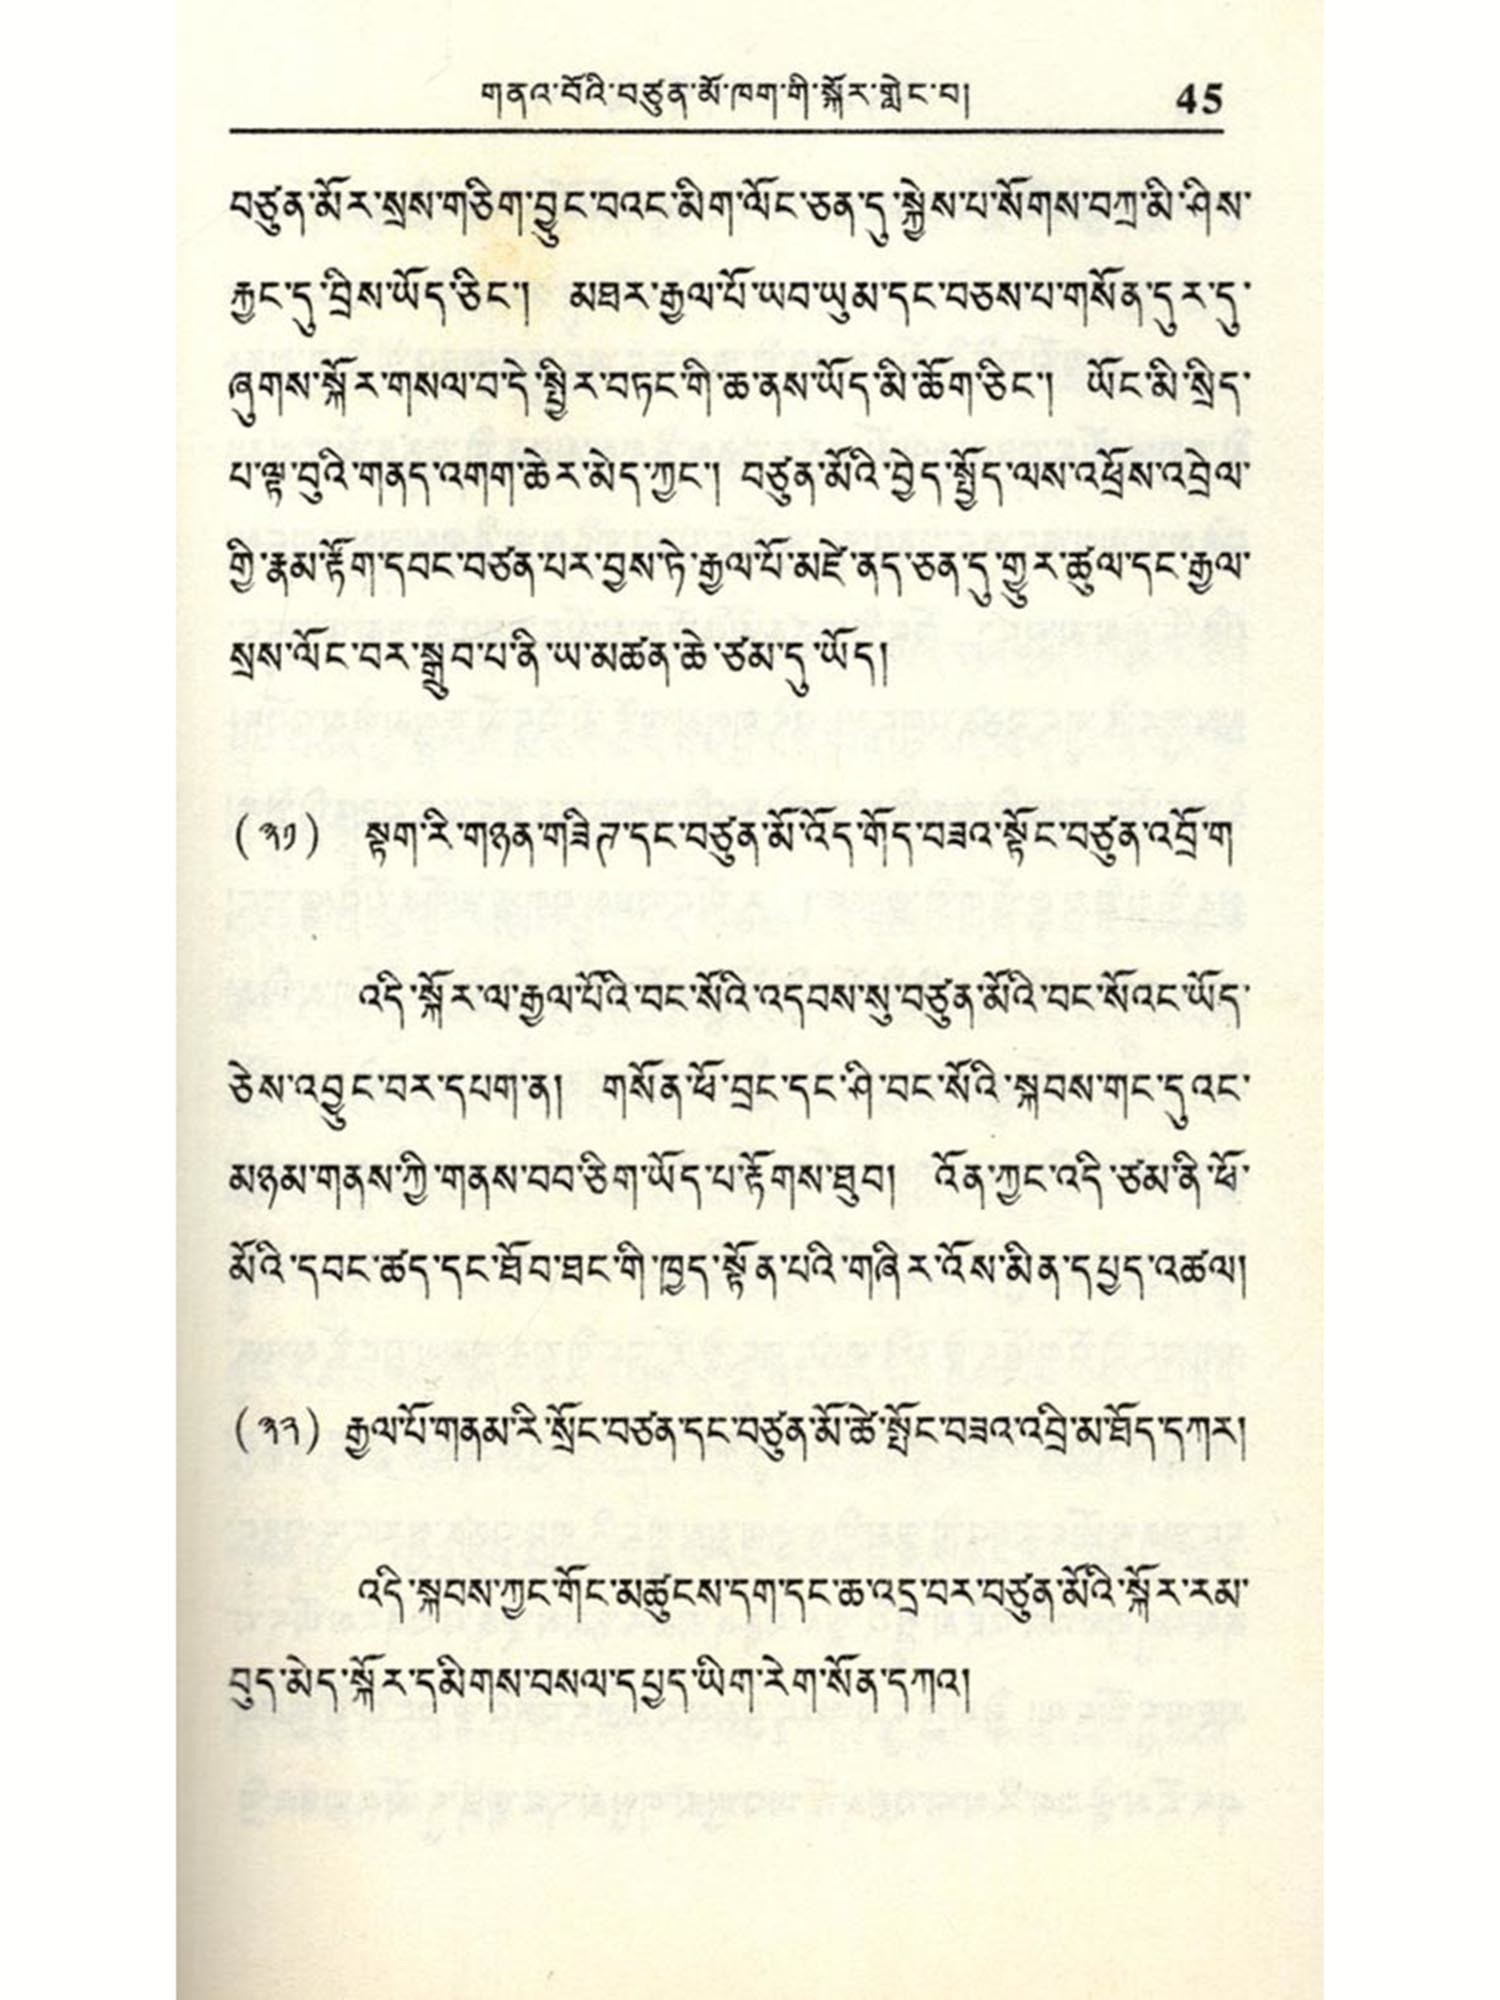 གནའ་བོའི་བཙུན་མོ་ཁག་གི་སྐོར་གླེང་བ། 45
བཙུན་མོར་སྲས་གཅིག་བྱུང་བའང་མིག་ལོང་ཅན་དུ་སྐྱེས་པ་སོགས་བཀྲ་མི་ཤིས་
རྐྱང་དུ་བྲིས་ཡོད་ཅིང་། མཐར་རྒྱལ་པོ་ཡབ་ཡུམ་དང་བཅས་པ་གསོན་དུར་དུ་
ཞུགས་སྐོར་གསལ་བ་དེ་སྤྱིར་བཏང་གི་ཆ་ནས་ཡོད་མི་ཆོག་ཅིང་། ཡོང་མི་སྲིད་
པ་ལྟ་བུའི་གནད་འགག་ཆེར་མེད་ཀྱང་། བཙུན་མོའི་བྱེད་སྤྱོད་ལས་འཕྲོས་འབྲེལ་
གྱི་རྣམ་རྟོག་དབང་བཙན་པར་བྱས་ཏེ་རྒྱལ་པོ་མཛེ་ནད་ཅན་དུ་གྱུར་ཚུལ་དང་རྒྱལ་
སྲས་ལོང་བར་སྒྲུབ་པ་ནི་ཡ་མཚན་ཆེ་ཙམ་དུ་ཡོད།
(༣༡) སྟག་རི་གཉན་གཟིཊ་དང་བཙུན་མོ་འོད་གོད་བཟའ་སྟོང་བཙུན་འབྲོ་ག
འདི་སྐོར་ལ་རྒྱལ་པོའི་བང་སོའི་འདབས་སུ་བཙུན་མོའི་བང་སོའང་ཡོད་
ཅེས་འབྱུང་བར་དཔག་ན། གསོན་ཕོ་བྲང་དང་ཤི་བང་སོའི་སྐབས་གང་དུའང་
མཉམ་གནས་ཀྱི་གནས་བབ་ཅིག་ཡོད་པ་རྟོགས་ཐུབ། འོན་ཀྱང་འདི་ཙམ་ནི་ཕོ་
མོའི་དབང་ཚད་དང་ཐོབ་ཐང་གི་ཁྱད་སྟོན་པའི་གཞིར་འོས་མིན་དཔྱད་འཚལ།
(༣༢) རྒྱལ་པོ་གནམ་རི་སྲོང་བཙན་དང་བཙུན་མོ་ཚེ་སྤོང་བཟའ་འབྲི་མ་ཐོད་དཀར།
འདི་སྐབས་ཀྱང་གོང་མཚུངས་དག་དང་ཆ་འདྲ་བར་བཙུན་མོའི་སྐོར་རམ་
བུད་མེད་སྐོར་དམིགས་བསལ་དཔྱད་ཡིག་རེག་སོན་དཀའ།